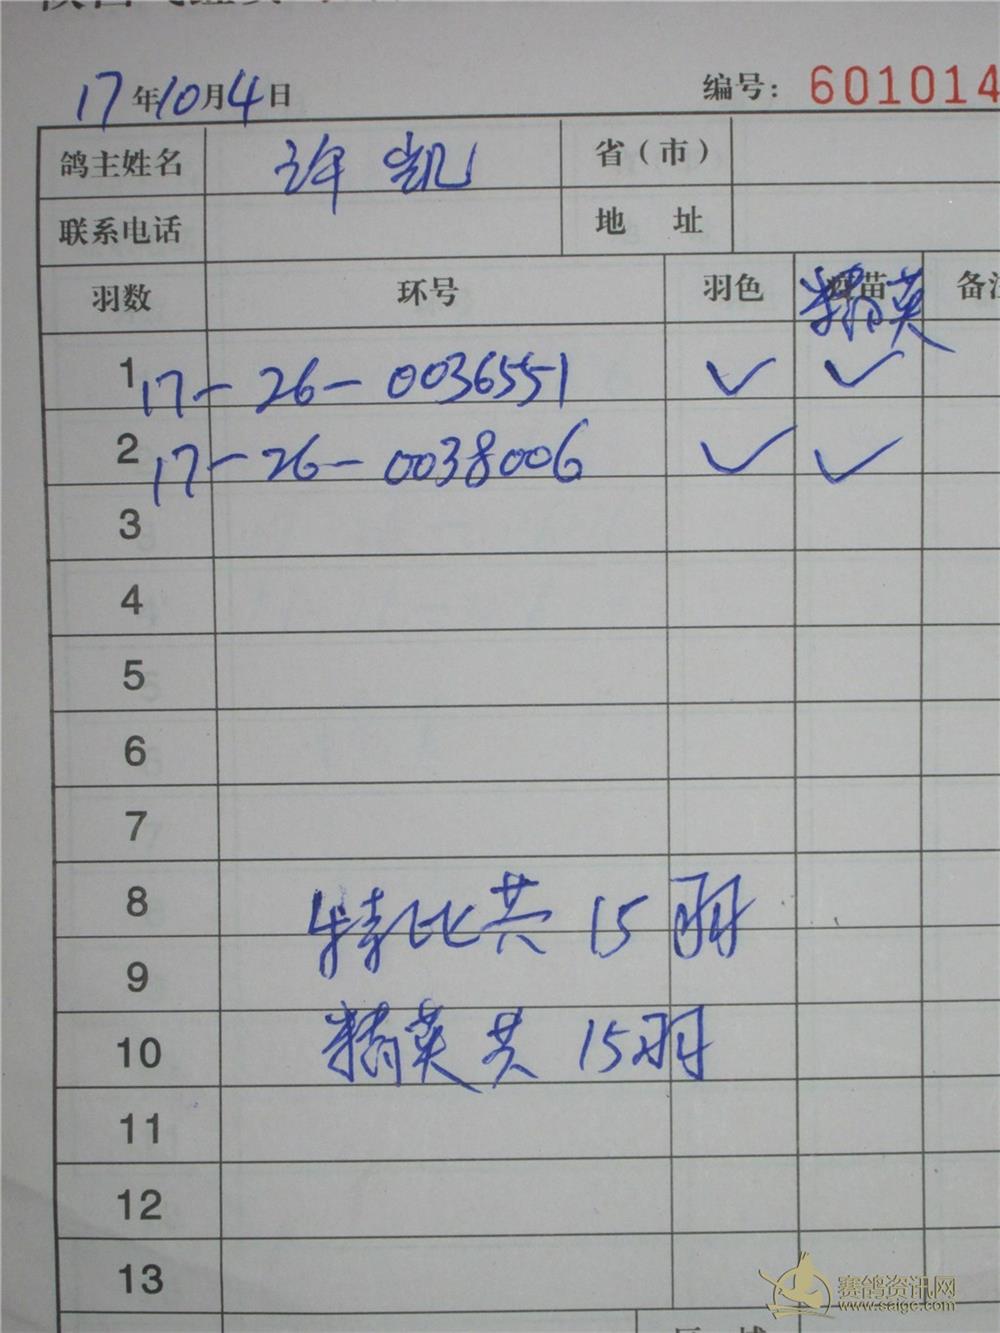 17年10月4日 编号: 601014
鸽主姓名 许凯 省(市)
联系电话 地 址
羽数 环号 羽色 精英 备注
1 17-26-0036551 ✓ ✓
2 17-26-0038006 ✓ ✓
3
4
5
6
7
8 特比共 15羽
9
10 精英共 15羽
11
12
13
赛鸽资讯网
www.saigc.com